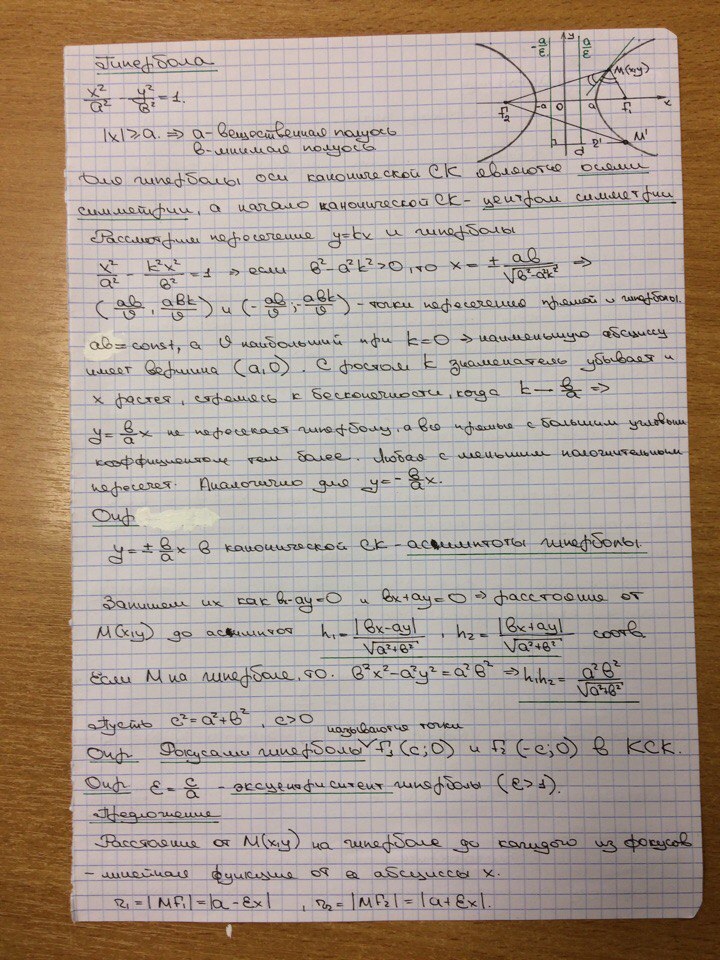 Гипербола
x²/a² - y²/b² = 1.
|x| ≥ a. ⇒ a - вещественная полуось
b - мнимая полуось
-a/ε a/ε y
M(x,y)
F₂ -a 0 a F₁ x
d r' M'
Для гиперболы оси канонической СК являются осями
симметрии, а начало канонической СК - центром симметрии
Рассмотрим пересечение y=kx и гиперболы
x²/a² - k²x²/b² = 1 ⇒ если b²-a²k²>0, то x = ± ab/√(b²-a²k²) ⇒
(ab/υ, abk/υ) и (-ab/υ; -abk/υ) - точки пересечения прямой и гиперболы.
ab = const, а υ наибольший при k=0 ⇒ наименьшую абсциссу
имеет вершина (a,0). С ростом k знаменатель убывает и
x растет, стремясь к бесконечности, когда k → b/a ⇒
y = b/a x не пересекает гиперболу, а все прямые с большим угловым
коэффициентом тем более. Любая с меньшим положительным
пересечет. Аналогично для y = -b/a x.
Опр
y = ± b/a x в канонической СК - асимптоты гиперболы.
Запишем их как bx-ay=0 и bx+ay=0 ⇒ расстояние от
M(x,y) до асимптот h₁ = |bx-ay|/√(a²+b²), h₂ = |bx+ay|/√(a²+b²) соотв
Если M на гиперболе, то. b²x²-a²y² = a²b² ⇒ h₁h₂ = a²b²/√(a²+b²)
Пусть c²=a²+b², c>0
называются точки
Опр Фокусами гиперболы F₁(c;0) и F₂(-c;0) в КСК.
Опр ε = c/a - эксцентриситет гиперболы (ε>1).
Предложение
Расстояние от M(x,y) на гиперболе до каждого из фокусов
- линейная функция от абсциссы x.
r₁ = |MF₁| = |a-εx|, r₂ = |MF₂| = |a+εx|.